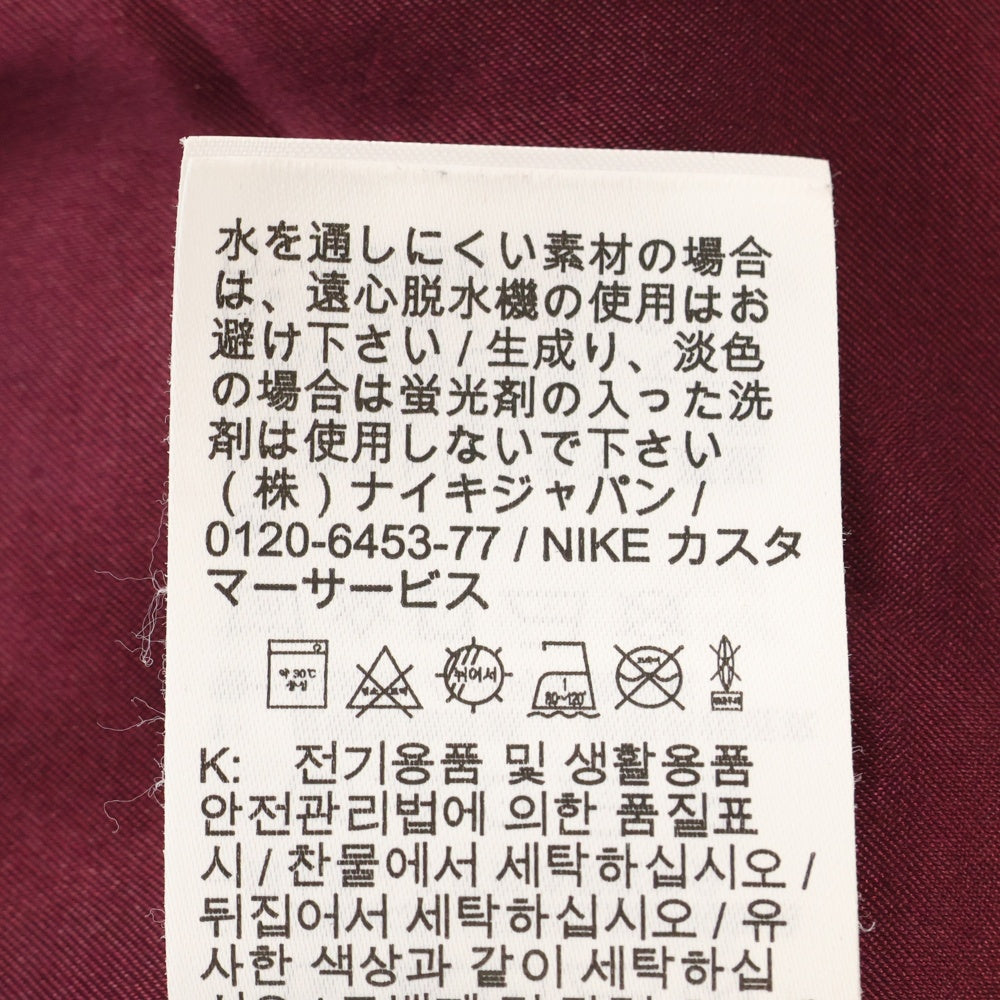 水を通しにくい素材の場合
は、遠心脱水機の使用はお
避け下さい / 生成り、淡色
の場合は蛍光剤の入った洗
剤は使用しないで下さい
(株) ナイキジャパン /
0120-6453-77 / NIKE カスタ
マーサービス
약 30℃
중성
뉘어서
1
80~120℃
K: 전기용품 및 생활용품
안전관리법에 의한 품질표
시 / 찬물에서 세탁하십시오 /
뒤집어서 세탁하십시오 / 유
사한 색상과 같이 세탁하십